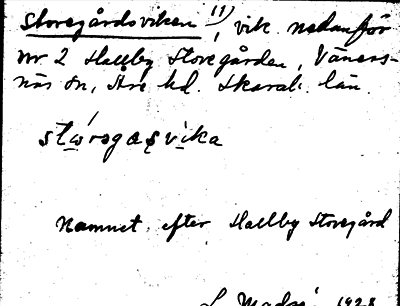 Storegårdsviken 11), vik nedanför
nr 2 Hallby Storegården, Väners-
näs sn, Åse hd. Skarab. län.
stɷ́rəgasvika
Namnet efter Hallby Storegård
1928